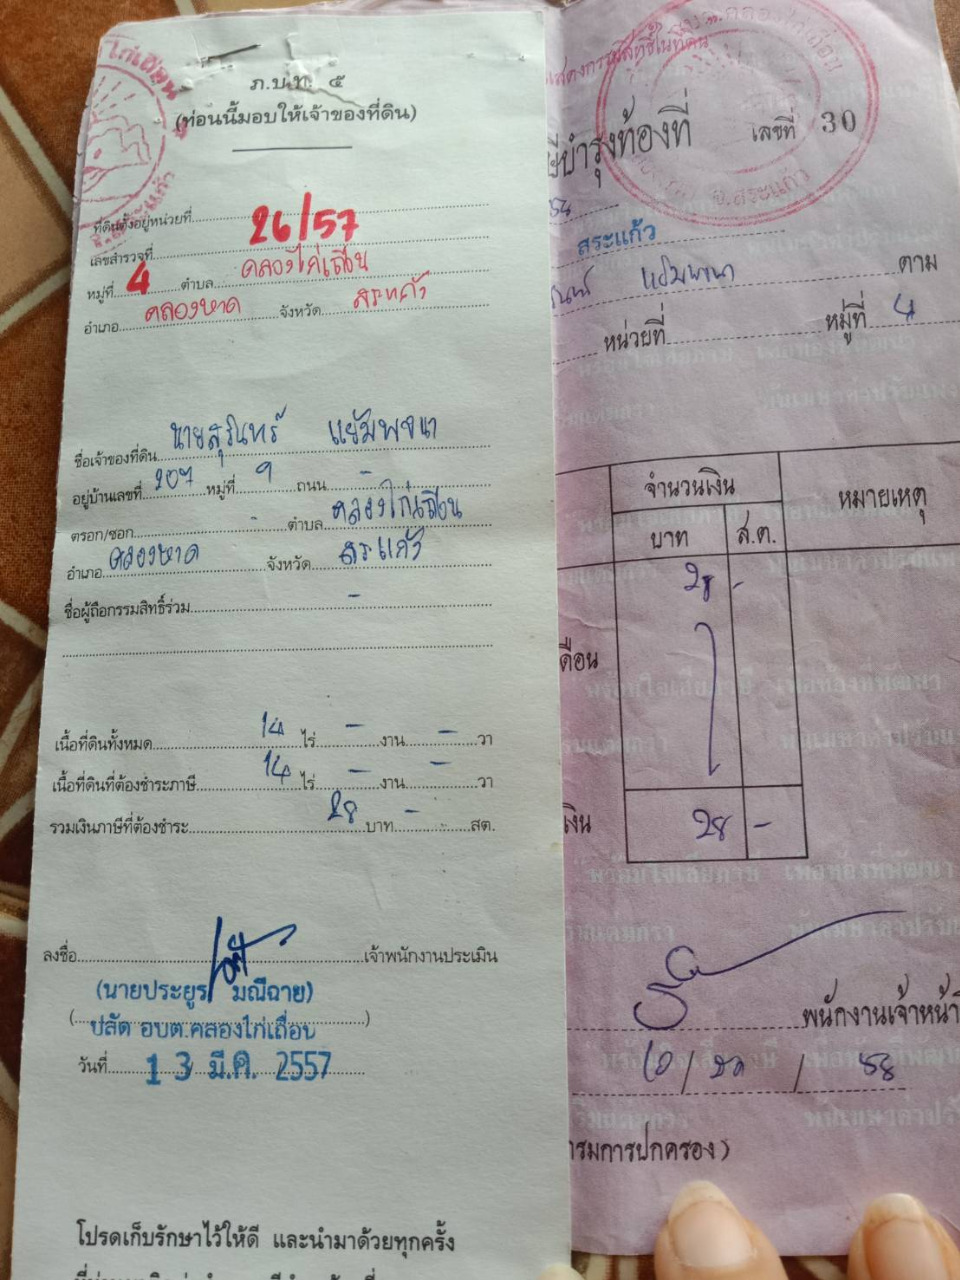 ภ.บ.ท. ๕
(ท่อนนี้มอบให้เจ้าของที่ดิน)
ที่ดินตั้งอยู่หน่วยที่
เลขสำรวจที่ 26/57
หมู่ที่ 4 ตำบล คลองไก่เถื่อน
อำเภอ คลองหาด จังหวัด สระแก้ว
ชื่อเจ้าของที่ดิน นายสุรินทร์ แย้มพจนา
อยู่บ้านเลขที่ 207 หมู่ที่ 9 ถนน -
ตรอก/ซอก - ตำบล คลองไก่เถื่อน
อำเภอ คลองหาด จังหวัด สระแก้ว
ชื่อผู้ถือกรรมสิทธิ์ร่วม -
เนื้อที่ดินทั้งหมด 14 ไร่ - งาน - วา
เนื้อที่ดินที่ต้องชำระภาษี 14 ไร่ - งาน - วา
รวมเงินภาษีที่ต้องชำระ 28 บาท - สต.
ลงชื่อ เจ้าพนักงานประเมิน
(นายประยูร มณีฉาย)
ปลัด อบต.คลองไก่เถื่อน
วันที่ 13 มี.ค. 2557
โปรดเก็บรักษาไว้ให้ดี และนำมาด้วยทุกครั้ง
บำรุงท้องที่ เลขที่ 30
จ.สระแก้ว
สระแก้ว
แย้มพจนา ตาม
หน่วยที่ หมู่ที่ 4
จำนวนเงิน หมายเหตุ
บาท ส.ต.
28 -
28 -
พนักงานเจ้าหน้าที่
58
กรมการปกครอง)